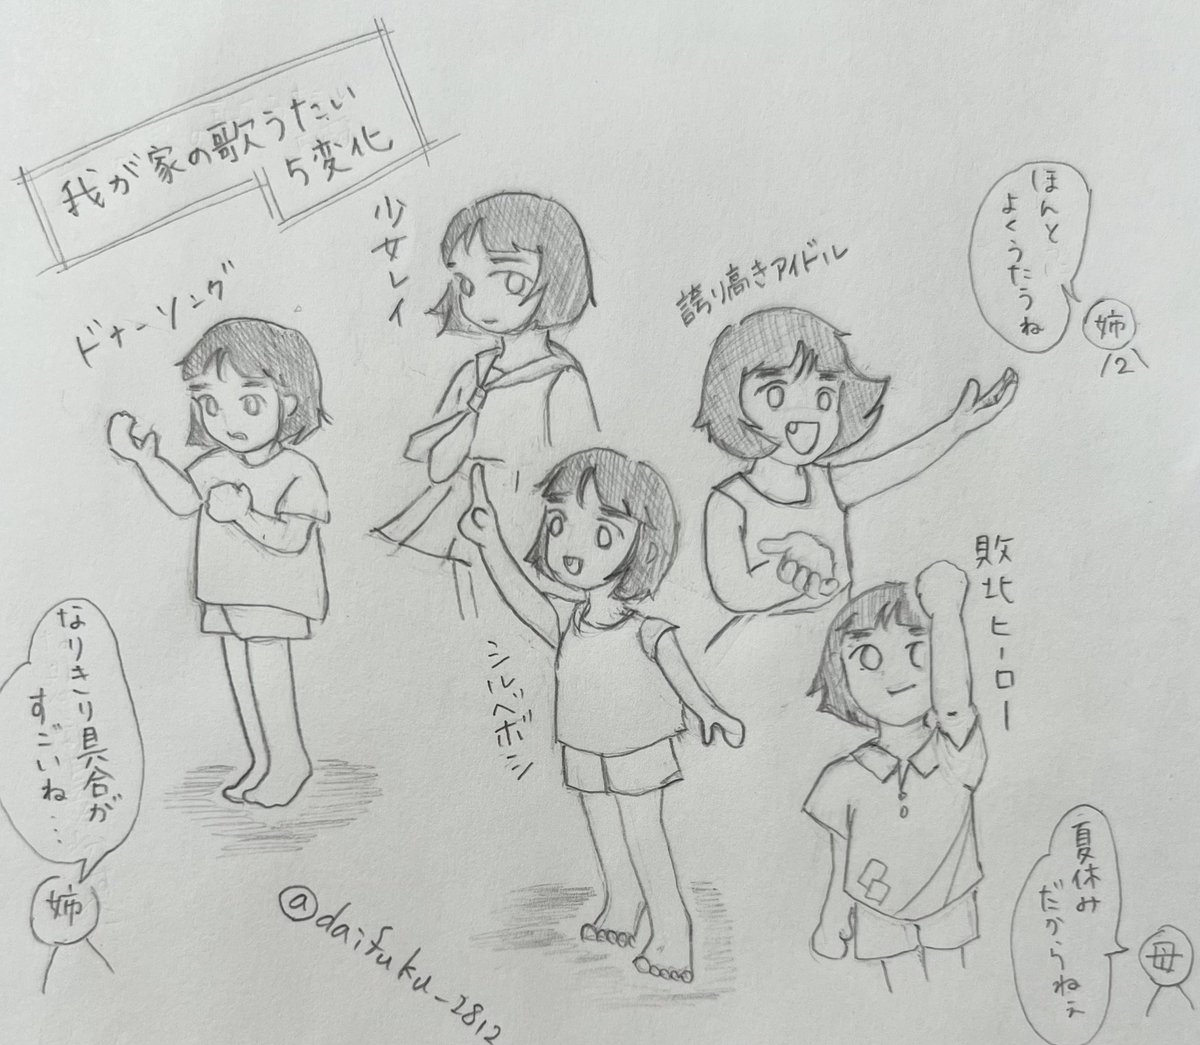 我が家の歌うたい
5変化
少女レイ
ドナーソング
誇り高きアイドル
ほんと
よくうたうね
姉
シルベボシ
敗北ヒーロー
なりきり具合が
すごいね…
姉
夏休み
だからねぇ
母
@daifuku_2812